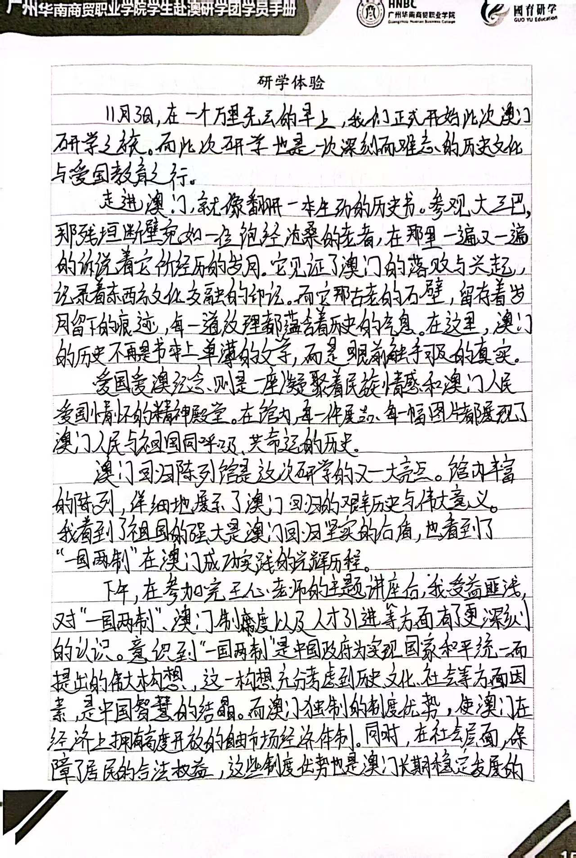 广州华南商贸职业学院学生赴澳研学团学员手册
HNBC
广州华南商贸职业学院
Guangzhou Huanan Business College
國育研学
GUO YU Education
研学体验
11月3日,在一个万里无云的早上,我们正式开始此次澳门
研学之旅。而此次研学也是一次深刻而难忘的历史文化
与爱国教育之行。
走进澳门,就像翻开一本生动的历史书。参观大三巴,
那残垣断壁宛如一位饱经沧桑的老者,在那里一遍又一遍
的诉说着它所经历的岁月。它见证了澳门的落败与兴起,
记录着东西方文化交融的印记。而它那古老的石壁,留存着岁
月留下的痕迹,每一道纹理都蕴含着历史的气息。在这里,澳门
的历史不再是书本上单薄的文字,而是眼前触手可及的真实。
爱国爱澳纪念,则是一座凝聚着民族情感和澳门人民
爱国情怀的精神殿堂。在馆内,每一件展品、每一幅图片都展现了
澳门人民与祖国同呼吸、共命运的历史。
澳门回归陈列馆是这次研学的又一大亮点。馆内丰富
的陈列,详细地展示了澳门回归的艰辛历史与伟大意义。
我看到了祖国的强大是澳门回归坚实的后盾,也看到了
“一国两制”在澳门成功实践的光辉历程。
下午,在参加完王心老师的主题讲座后,我受益匪浅,
对“一国两制”、澳门制度以及人才引进等方面有了更深刻
的认识。意识到“一国两制”是中国政府为实现国家和平统一而
提出的伟大构想,这一构想充分考虑到历史文化、社会等方面因
素,是中国智慧的结晶。而澳门独制的制度优势,使澳门在
经济上拥有高度开放的自由市场经济体制。同时,在社会层面,保
障了居民的合法权益,这些制度优势也是澳门长期稳定发展的